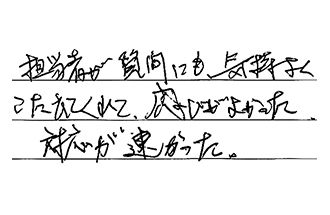 担当者が質問にも、気持よく
こたえてくれて、感じがよかった。
対応が速かった。